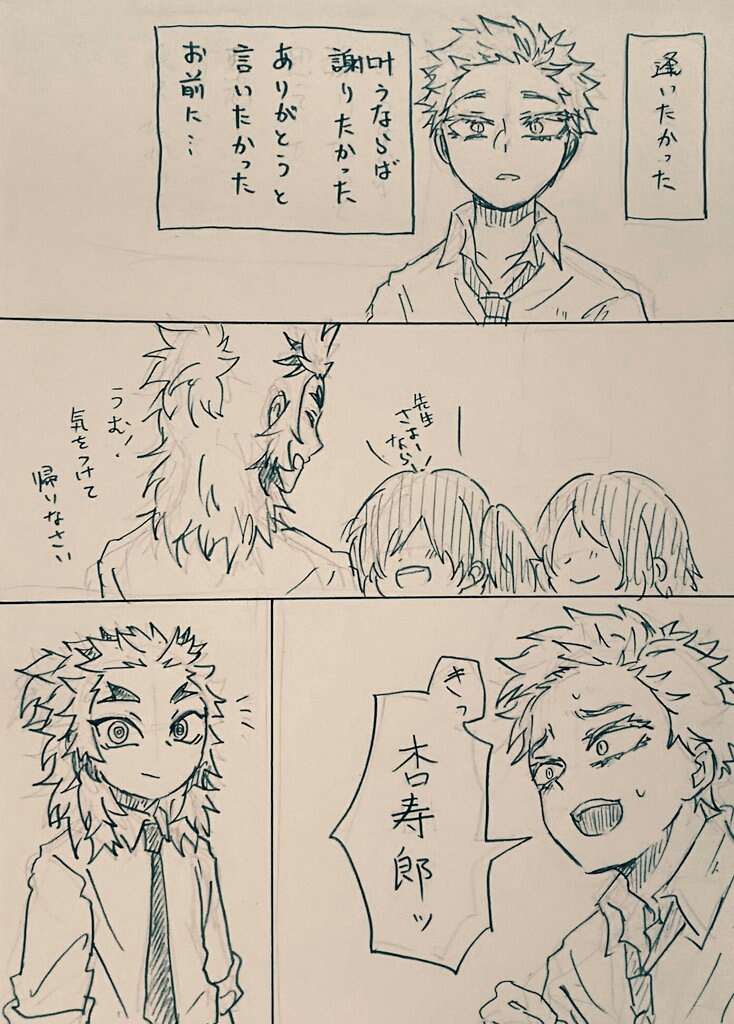 逢いたかった
叶うならば
謝りたかった
ありがとうと
言いたかった
お前に…
先生
さよー
なら
うむ!
気をつけて
帰りなさい
きっ
杏寿郎ッ